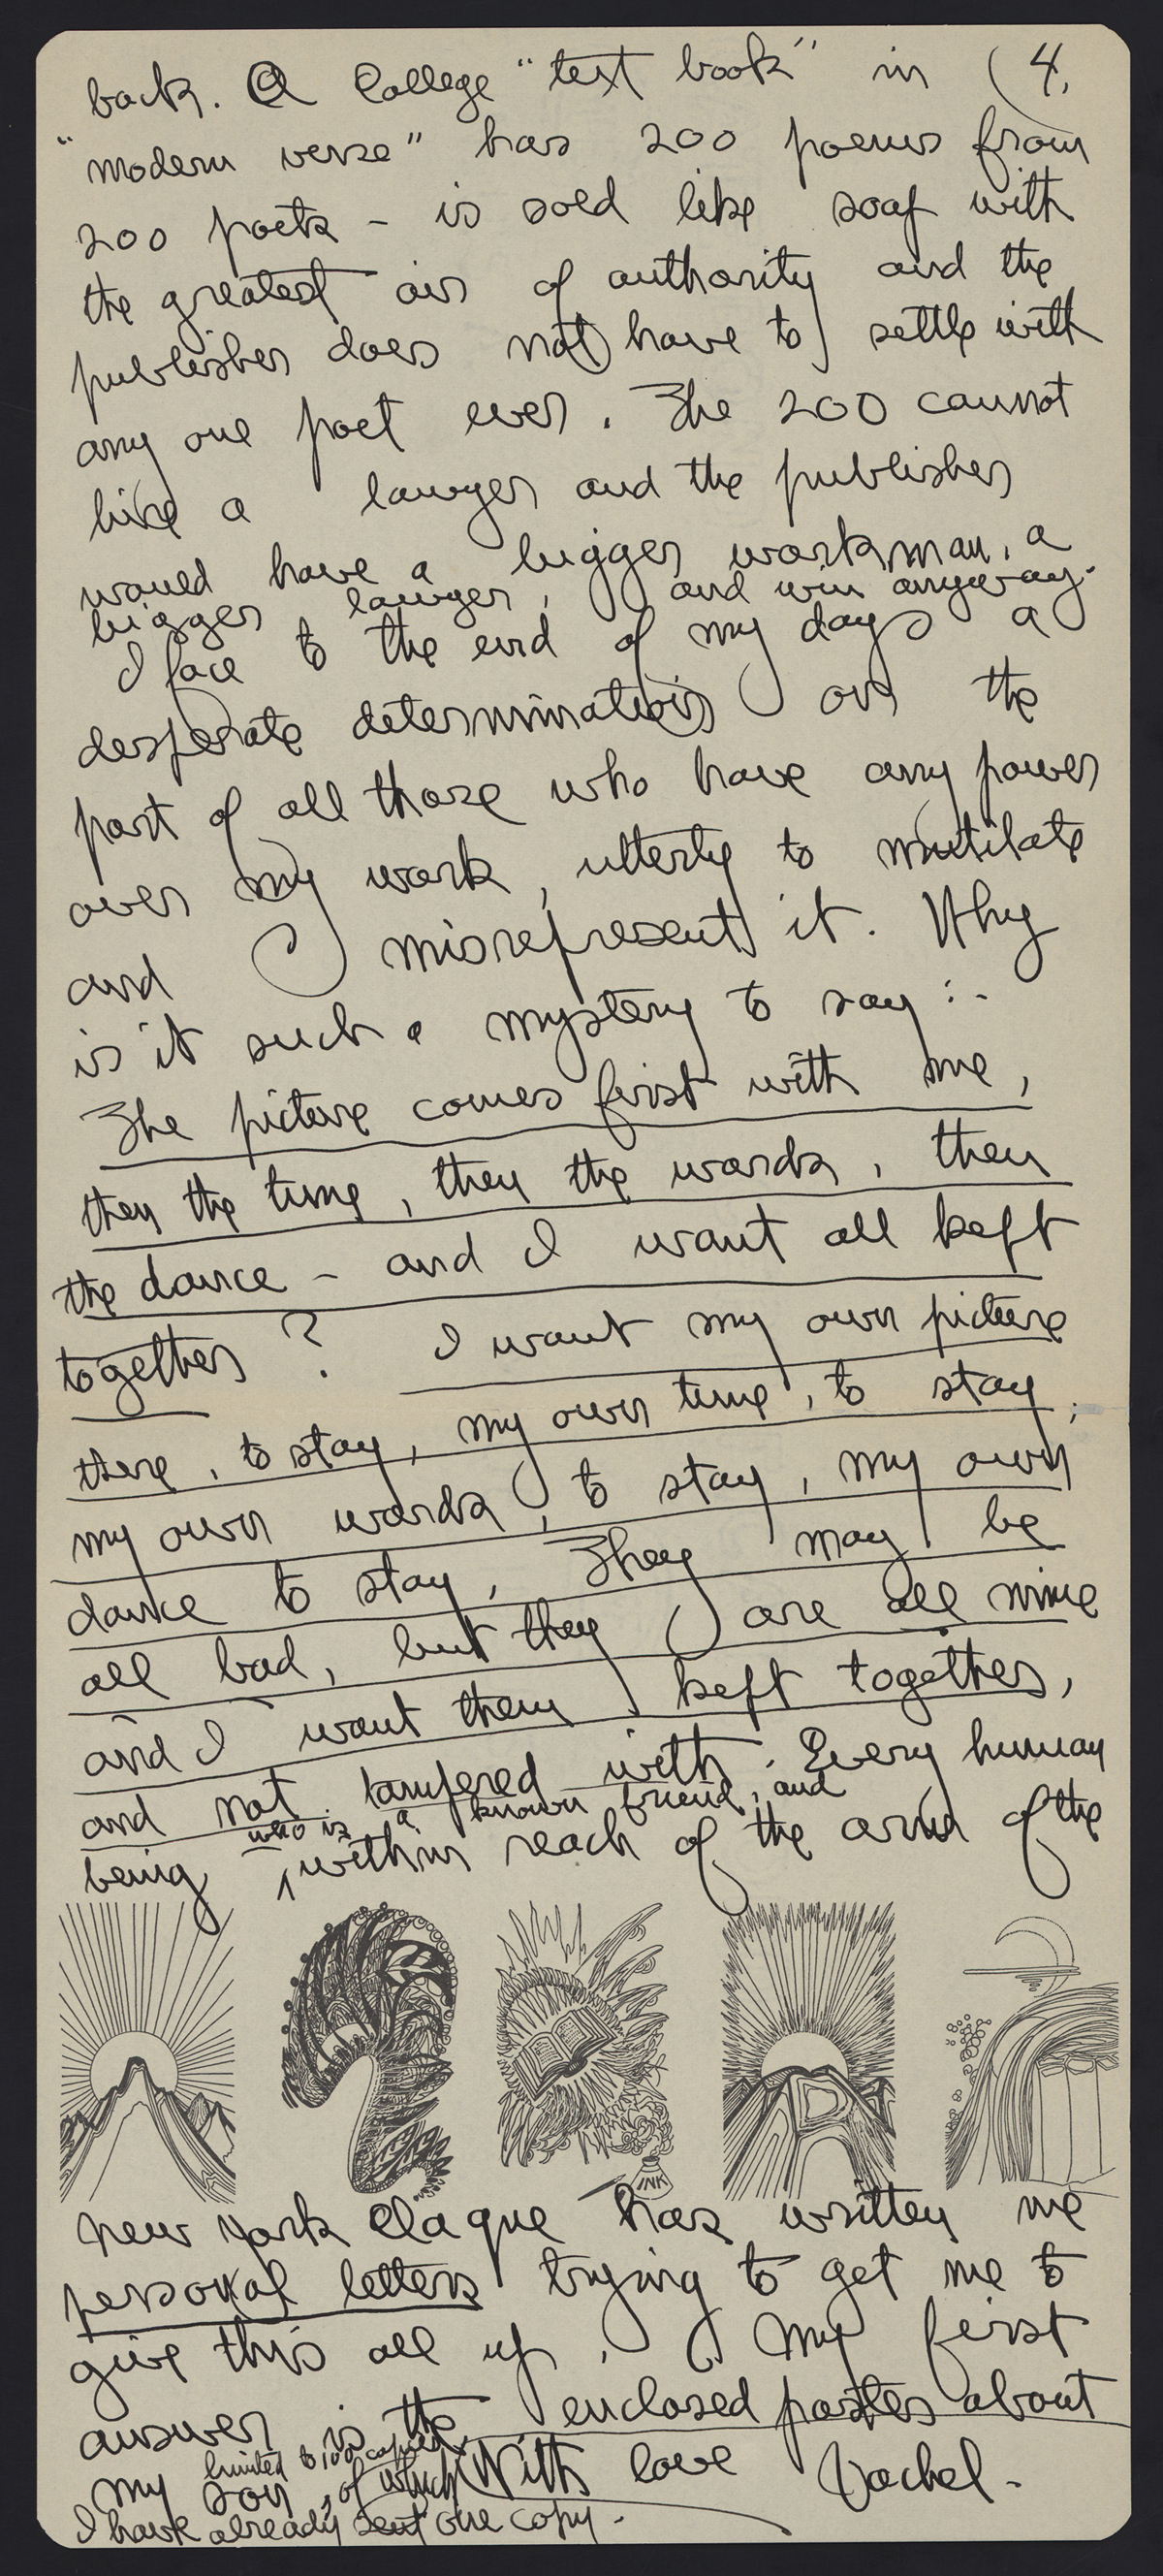 back. A College "text book" in (4.
"modern verse" has 200 poems from
200 poets - is sold like soap with
the greatest air of authority and the
publisher does not have to settle with
any one poet ever. The 200 cannot
hire a lawyer and the publisher
would have a bigger workman, a
bigger lawyer, and win anyway.
I face to the end of my days a
desperate determination on the
part of all those who have any power
over my work, utterly to mutilate
and misrepresent it. Why
is it such a mystery to say :-
The picture comes first with me,
then the tune, then the words, then
the dance - and I want all kept
together? I want my own picture
there, to stay, my own tune, to stay,
my own words, to stay, my own
dance to stay, They may be
all bad, but they are all mine
and I want them kept together,
and not tampered with. Every human
who is a known friend, and
being ^ within reach of the arm of the
INK
new york Claque has written me
personal letters trying to get me to
give this all up. My first
answer is the enclosed poster about
limited to 100 copies
my son, of which With love Vachel.
I have already sent one copy.